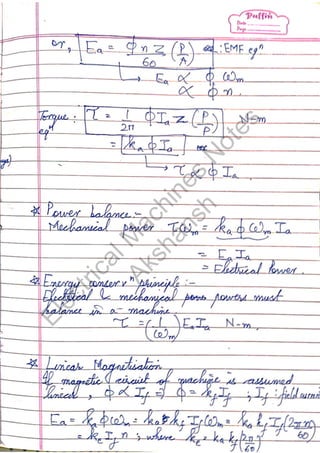 Puffin
Date
Page
or, Ea = ϕ n Z (P/A) / 60 : EMF eqⁿ
→ Ea ∝ ϕ ωm
∝ ϕ n.
Torque eqⁿ : τ = 1/2π ϕ Ia Z (P/P) N-m
= ka ϕ Ia
→ τ ∝ ϕ Ia
* Power balance :-
Mechanical power τωm = ka ϕ ωm Ia
= Ea Ia
= Electrical Power.
* Energy conservⁿ principle :-
Electrical & mechanical powers must
balance in a machine.
τ = (1/ωm) Ea Ia N-m.
* Linear Magnetisation
If magnetic circuit of machine is assumed
linear, ϕ ∝ If ⇒ ϕ = kf If ; If : field current
Ea = ka ϕ ωm = ka kf If ωm = ka kf If (2πn/60)
= ke If n ; where ke = ka kf (2π/60)
Electrical Machines Notes
Akshansh